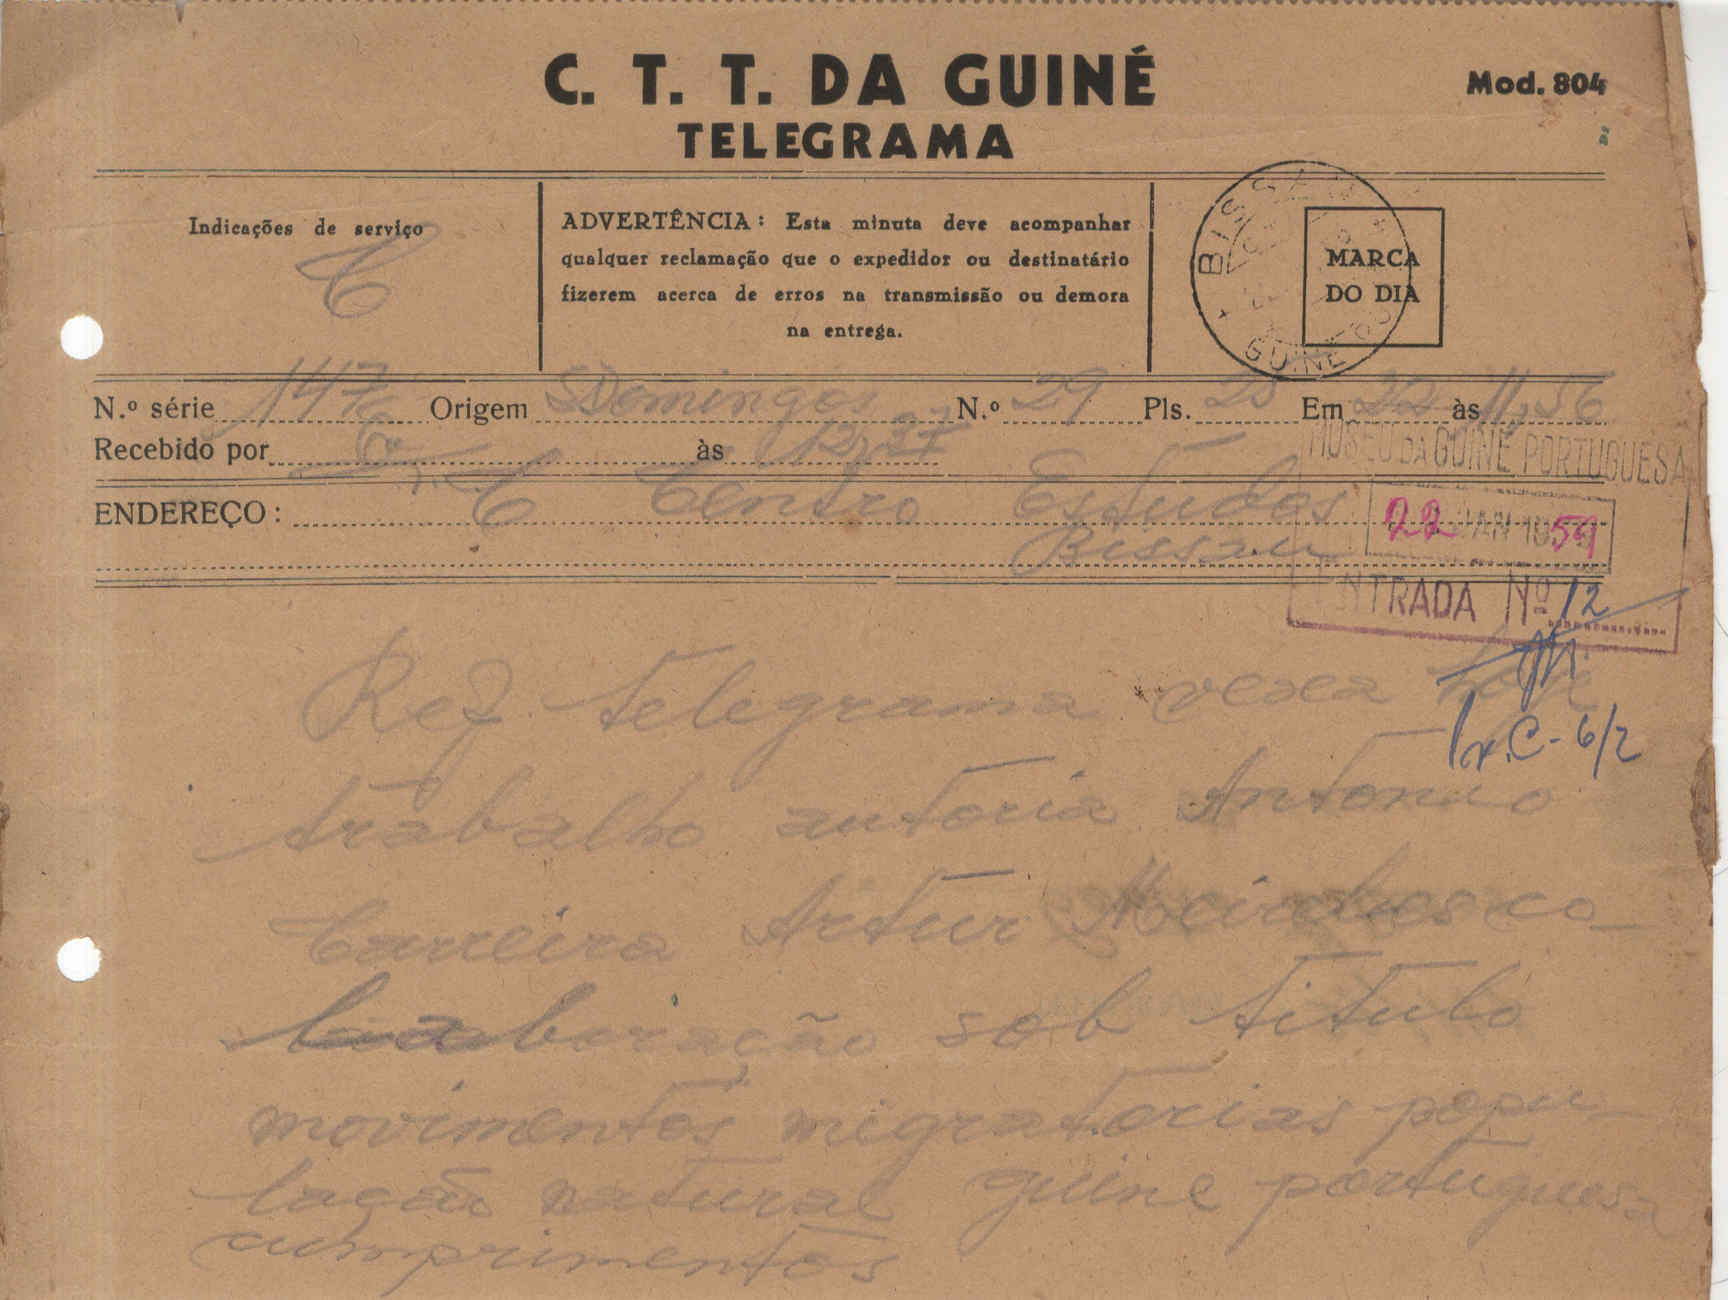 C. T. T. DA GUINÉ
Mod. 804
TELEGRAMA
Indicações de serviço
C
ADVERTÊNCIA: Esta minuta deve acompanhar
qualquer reclamação que o expedidor ou destinatário
fizerem acerca de erros na transmissão ou demora
na entrega.
BISSAU
GUINÉ
MARCA
DO DIA
N.º série 147 Origem Domingos N.º 29 Pls. 25 Em 22 às 11,56
Recebido por às
MUSEU DA GUINÉ PORTUGUESA
ENDEREÇO: C Centro Estudos
Bissau
22 JAN 1959
ENTRADA Nº 12
Ref telegrama vexa
C-6/2
trabalho autoria Antonio
Carreira Artur Meireles co-
laboração sob titulo
movimentos migratorias popu-
lação natural guine portuguesa
cumprimentos